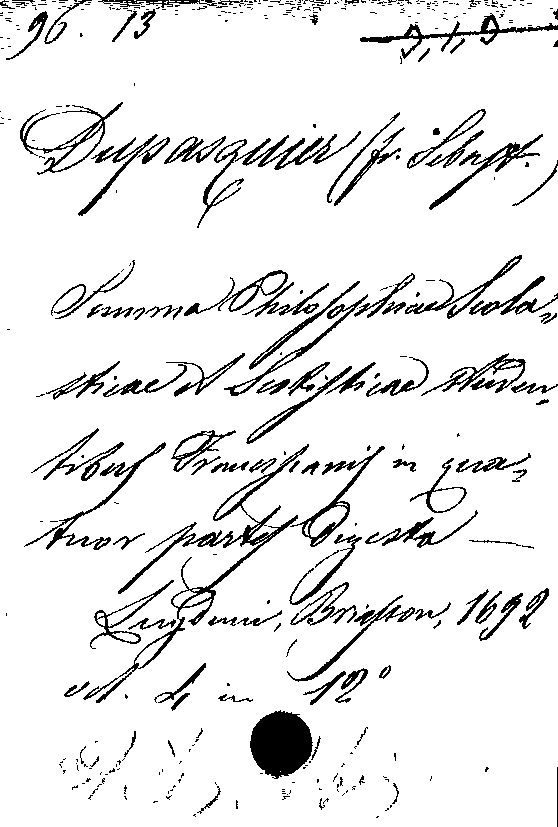 96. 13
Dupasquier (fr. Sebast.)
Summa Philosophiae Scola-
sticae et Scotisticae studen-
tibus Franciscanis in qua-
tuor partes Digesta —
Lugduni, Briasson, 1692
vol. 4 in 12°